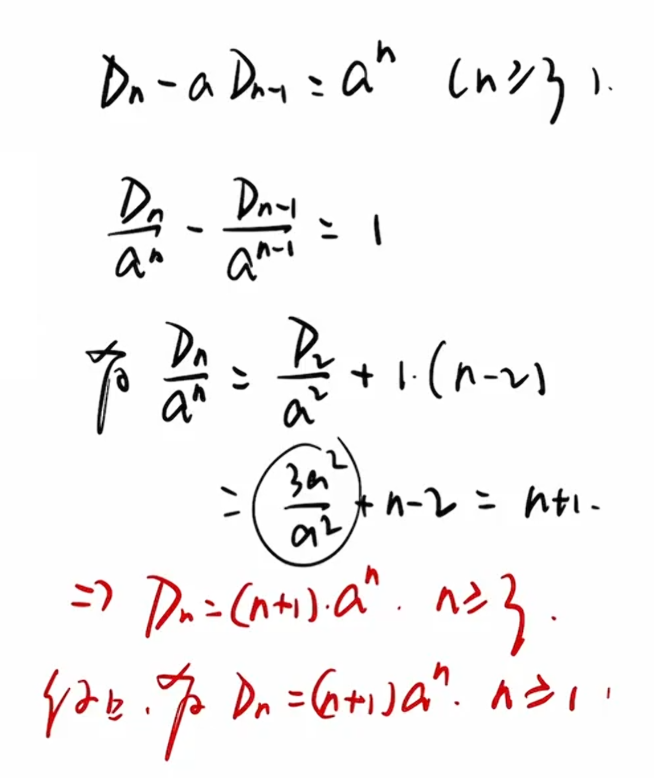 Dₙ - a Dₙ₋₁ = aⁿ (n ≥ 3).
Dₙ/aⁿ - Dₙ₋₁/aⁿ⁻¹ = 1
有 Dₙ/aⁿ = D₂/a² + 1·(n-2)
= 3a²/a² + n-2 = n+1.
⇒ Dₙ = (n+1)·aⁿ. n ≥ 3.
综上, 有 Dₙ = (n+1)aⁿ. n ≥ 1.